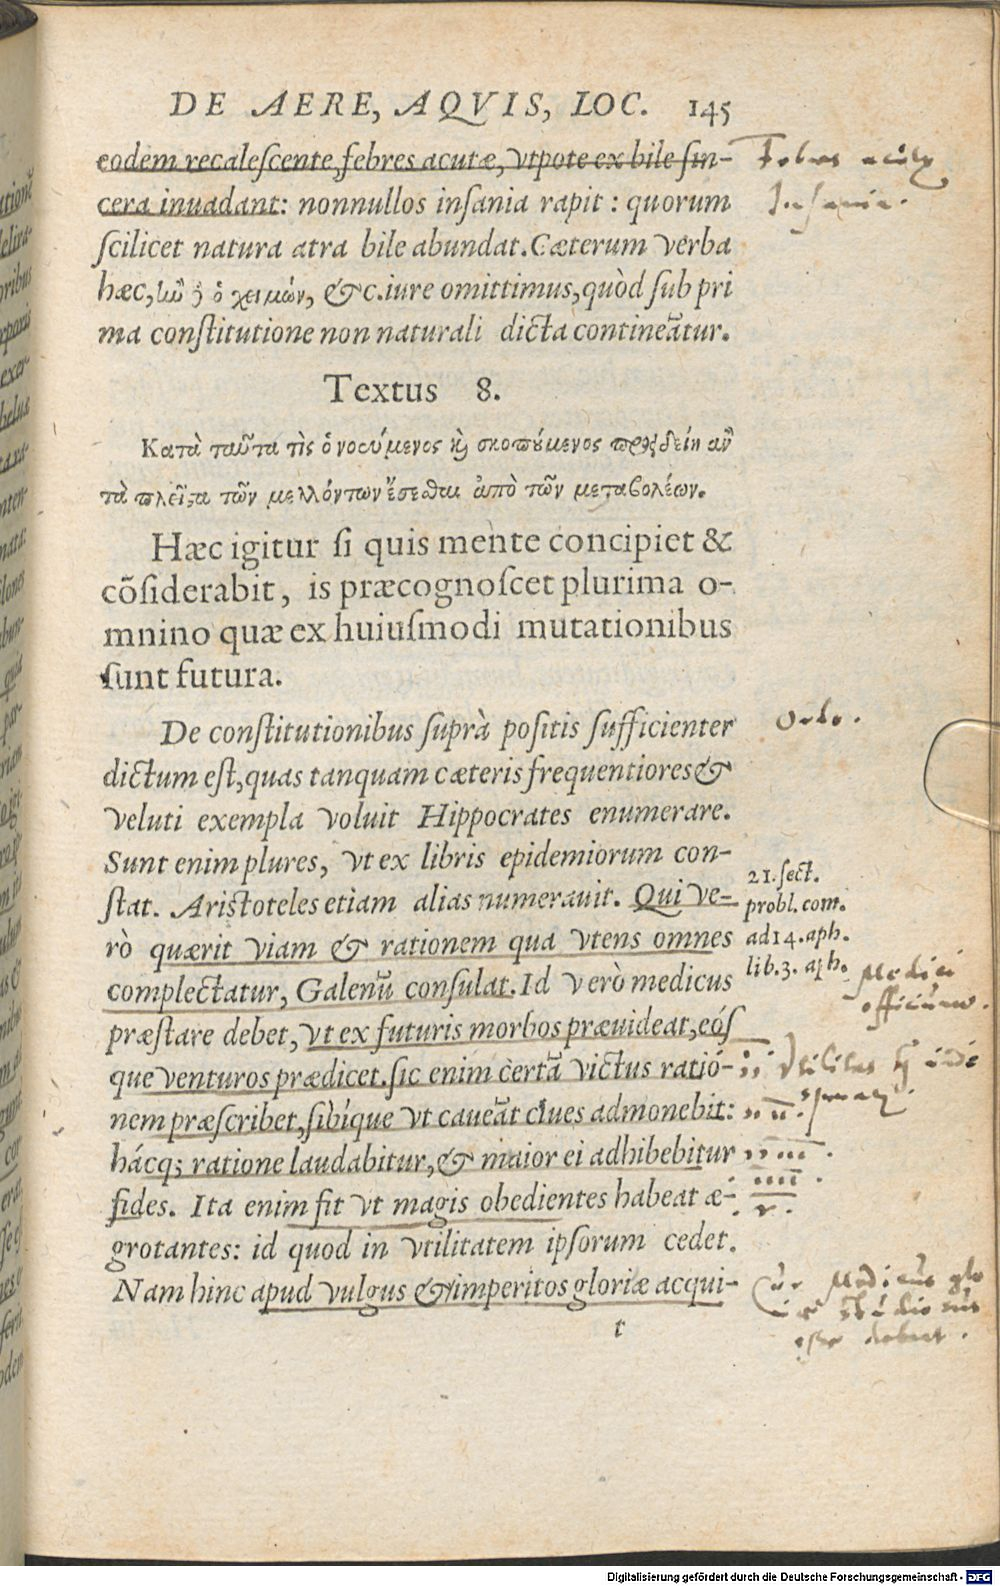 DE AERE, AQVIS, LOC. 145
eodem recalescente, febres acutæ, vtpote ex bile sin-
cera inuadant: nonnullos insania rapit: quorum
scilicet natura atra bile abundat. Cæterum verba
hæc, ὁ χειμών, &c. iure omittimus, quòd sub pri
ma constitutione non naturali dicta contineātur.
Febres acutæ
Insania.
Textus 8.
Κατὰ ταῦτα τὶς ὁνοούμενος κỳ σκοπούμενος προειδείη αν̓
τὰ πλεῖστα τῶν μελλόντων ἔσεσθαι ἀπὸ τῶν μεταβολέων.
Hæc igitur si quis mente concipiet &
cõsiderabit, is præcognoscet plurima o-
mnino quæ ex huiusmodi mutationibus
sunt futura.
De constitutionibus suprà positis sufficienter
dictum est, quas tanquam cæteris frequentiores &
veluti exempla voluit Hippocrates enumerare.
Sunt enim plures, vt ex libris epidemiorum con-
stat. Aristoteles etiam alias numerauit. Qui ve-
rò quærit viam & rationem qua vtens omnes
complectatur, Galenū consulat. Id verò medicus
præstare debet, vt ex futuris morbos præuideat, eós
que venturos prædicet. sic enim certā victus ratió-
nem præscribet, sibíque vt caueāt ciues admonebit:
hácq; ratione laudabitur, & maior ei adhibebitur
fides. Ita enim fit vt magis obedientes habeat æ-
grotantes: id quod in vtilitatem ipsorum cedet.
Nam hinc apud vulgus & imperitos gloriæ acqui-
t
Ordo.
21. sect.
probl. com.
ad 14. aph.
lib. 3. aph.
Medici
officium.
Vtilitas
Cur Medicus glo
riæ studiosus
esse debeat.
Digitalisierung gefördert durch die Deutsche Forschungsgemeinschaft - DFG